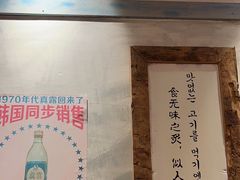 1970年代真露回来了
韩国同步销售
맛없는 고기를 먹기에
食无味之炙，似人